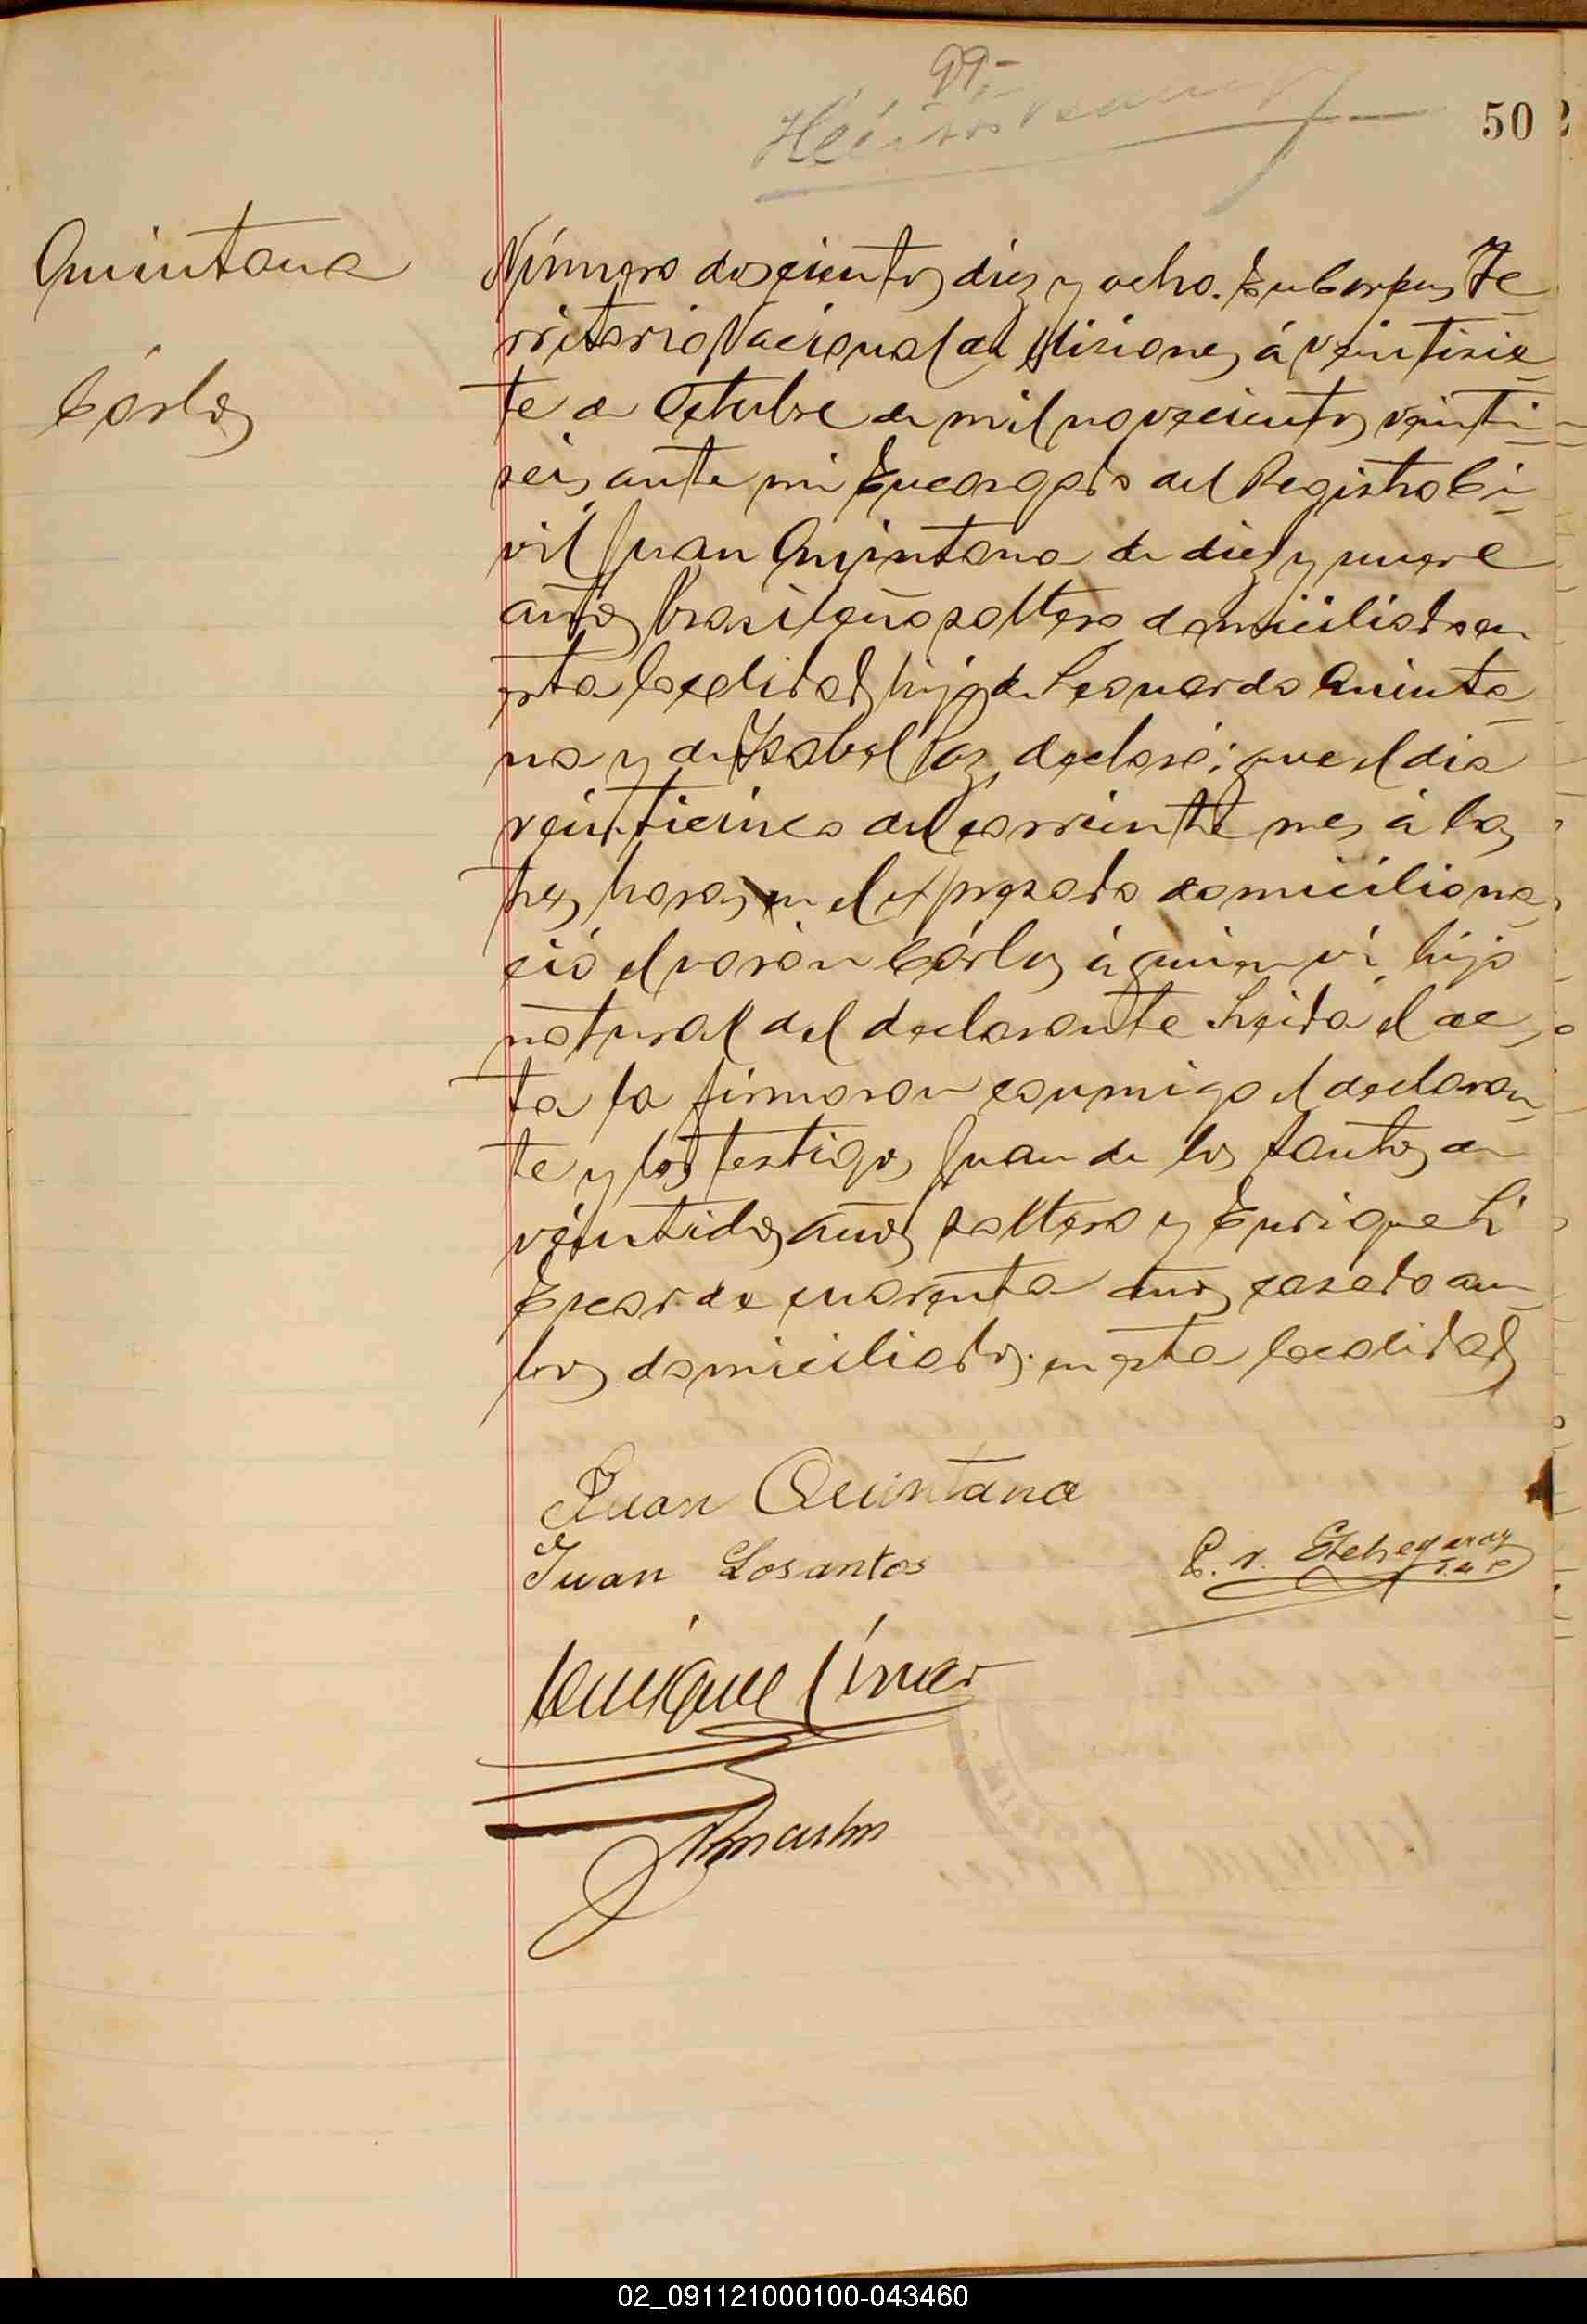 99-
50
Quintana
Cárlos
Número doscientos diez y ocho. En Corpus Te
rritorio Nacional de Misiones á veintisie
te de Octubre de mil novecientos veinti
seis ante mi Encargado del Registro Ci
vil Juan Quintana de diez y nueve
años brasileño soltero domiciliado en
esta localidad, hijo de Leonardo Quinta
na y de Isabel Paz, declaró; que el dia
veinticinco del corriente mes á las
tres horas en el expresado domicilio na
ció el varón Cárlos á quien ví, hijo
natural del declarante Leida el ac
ta la firmaron conmigo el declaran
te y los testigos Juan de los Santos de
veintidos años soltero y Enrique Li
de cuarenta años casado am
bos domiciliados en esta localidad
Juan Quintana
Juan Losantos
E. V. Etchegaray
Enrique
02_091121000100-043460